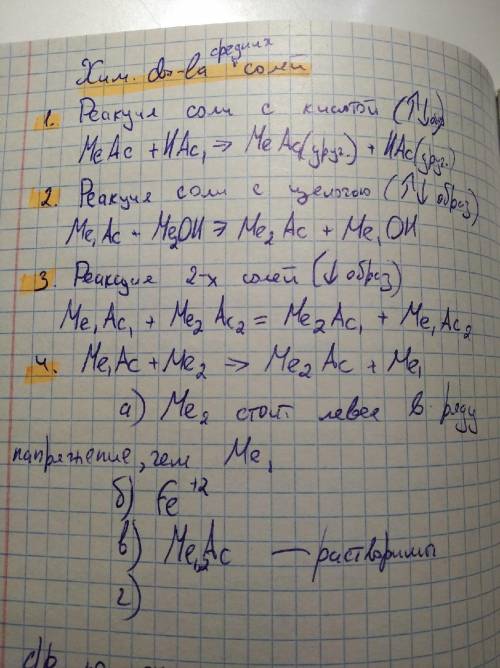 Хим. св-ва средних солей
1. Реакция соли с кислотой (↑↓обр)
MeAc + HAc₁ => MeAc(друг.) + HAc(друг.)
2. Реакция соли с щелочью (↑↓ образ)
Me₁Ac + Me₂OH => Me₂Ac + Me₁OH
3. Реакция 2-х солей (↓ образ)
Me₁Ac₁ + Me₂Ac₂ = Me₂Ac₁ + Me₁Ac₂
4. Me₁Ac + Me₂ => Me₂Ac + Me₁
а) Me₂ стоит левее в ряду
напряжение, чем Me₁
б) Fe⁺²
в) Me₁,₂Ac — растворимы
г)